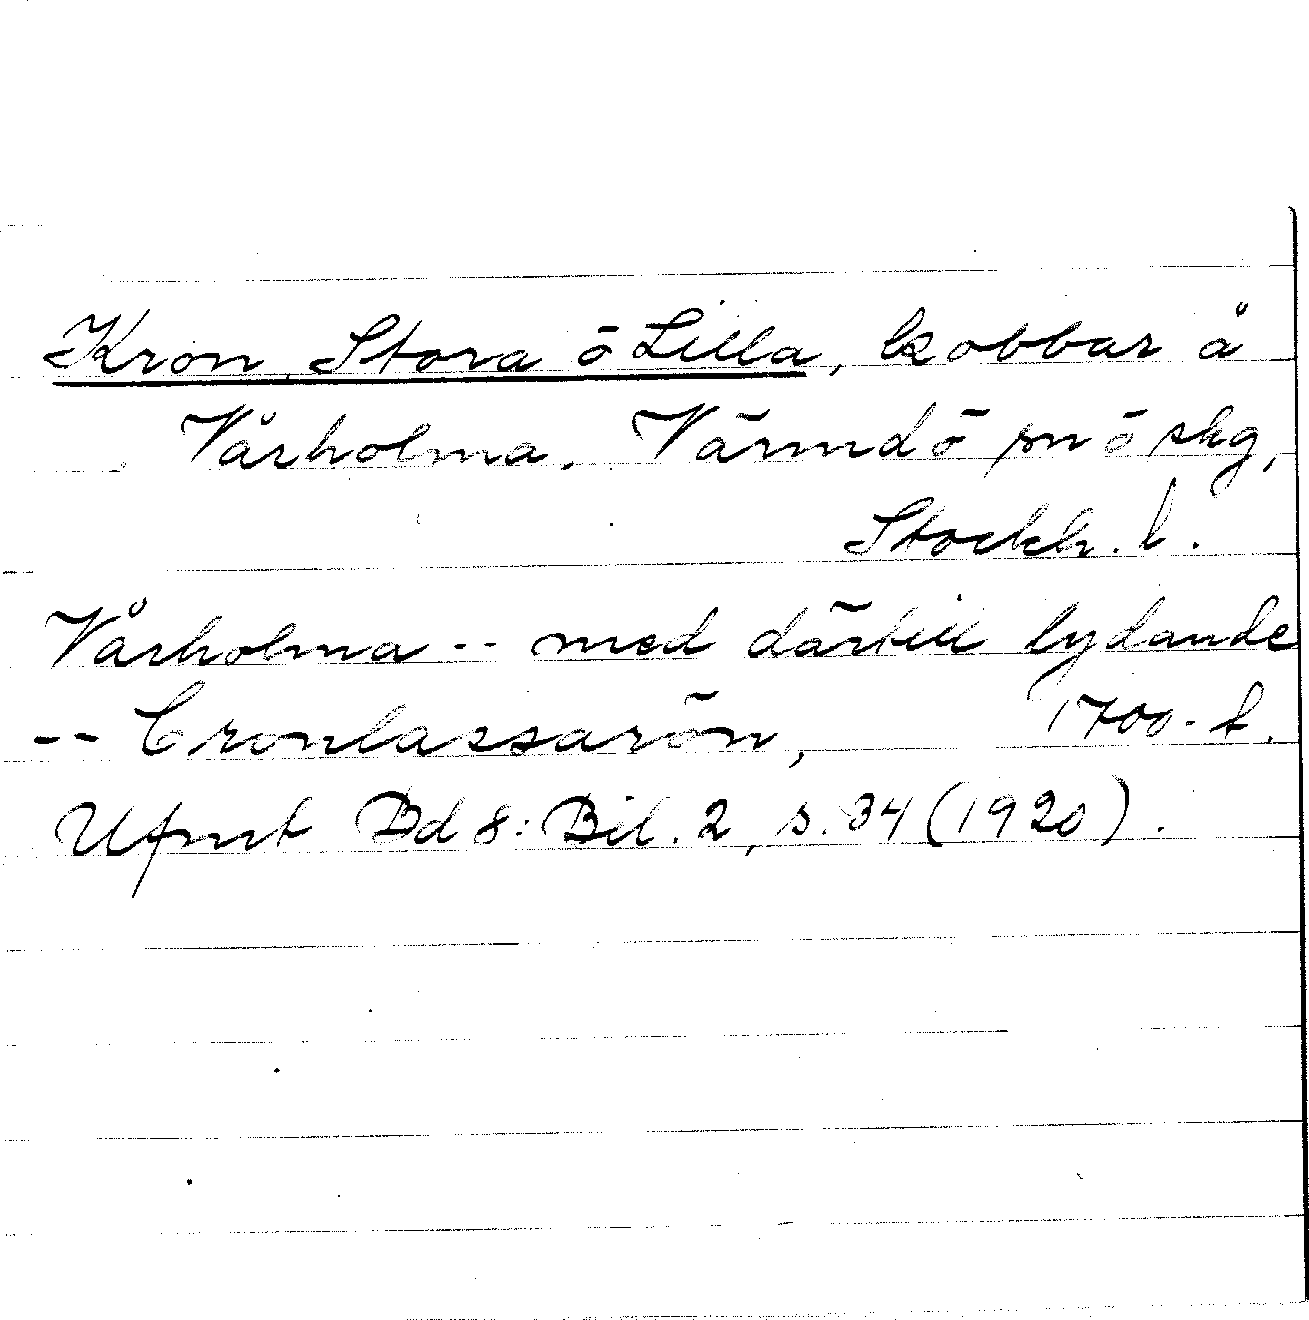 Kron, Stora ö Lilla, kobbar å
Vårholma. Värmdö sn ö skg,
Stockh. l.
Vårholma -- med därtill lydande
-- Cronlassarön, 1700-t.
Ufmt Bd 8: Bil. 2, s. 34 (1920).